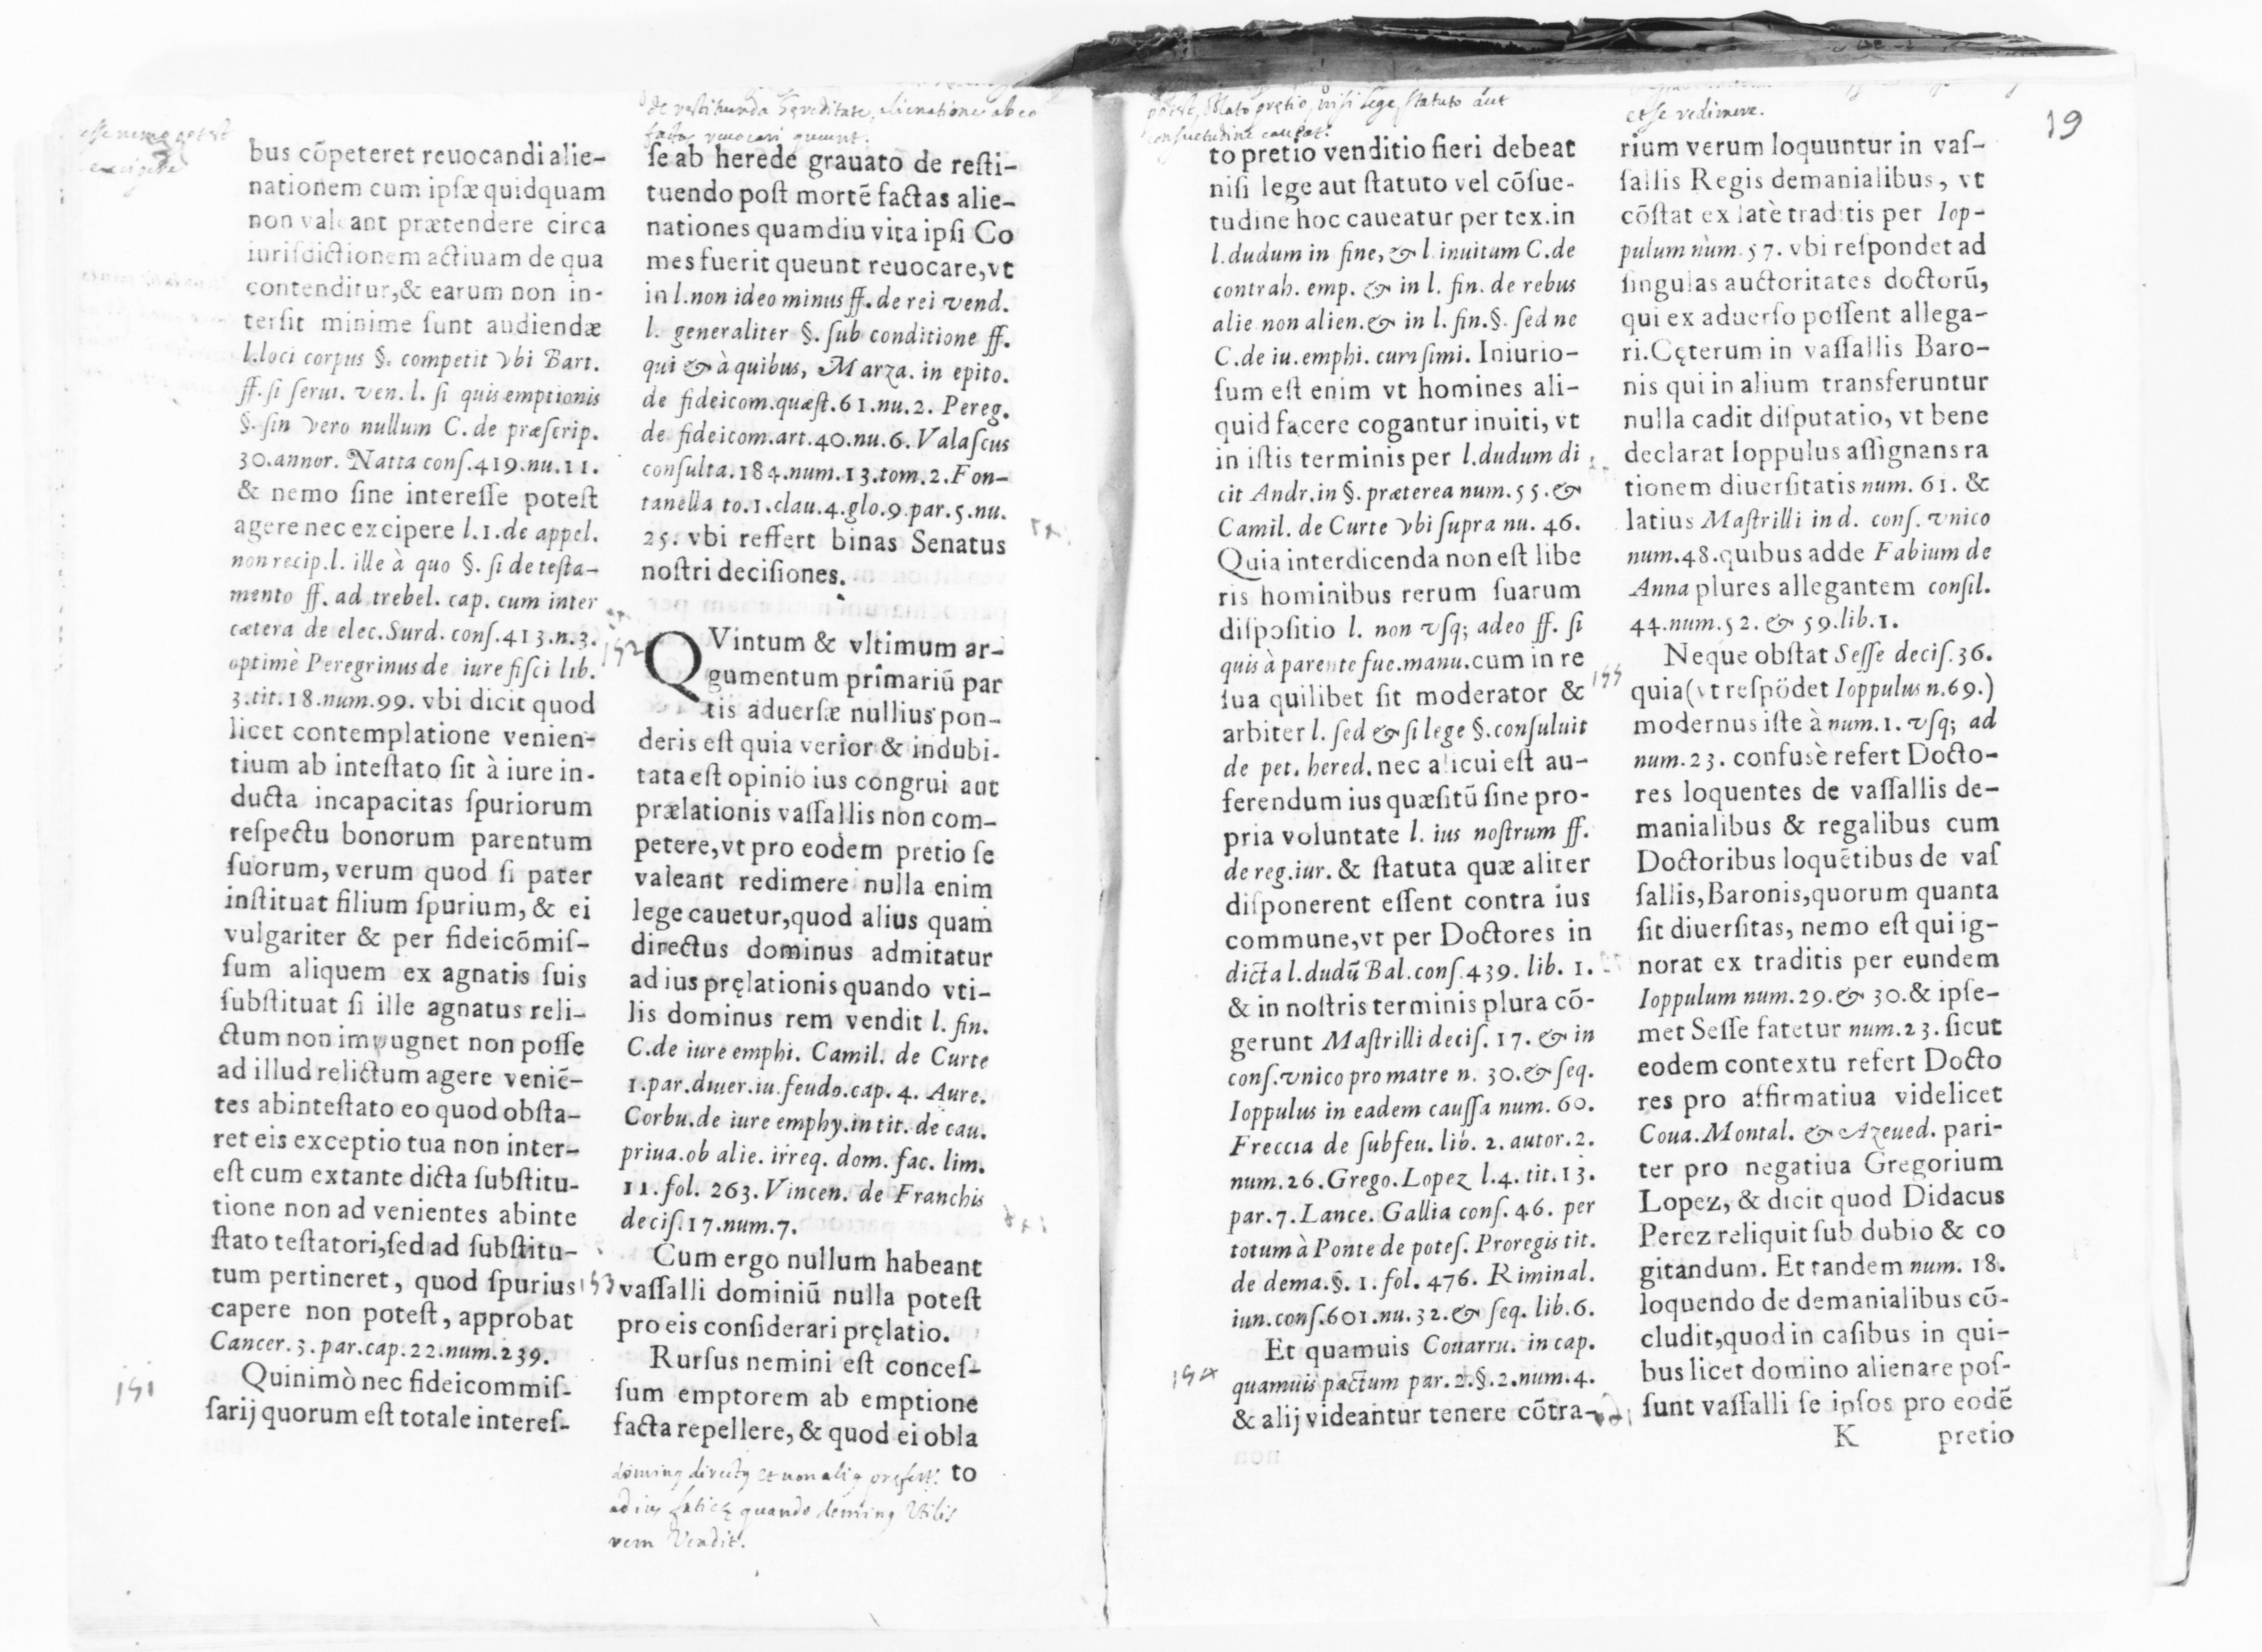 esse nemo potest
excipere
bus cõpeteret reuocandi alie-
nationem cum ipſæ quidquam
non valeant prætendere circa
iuriſdictionem actiuam de qua
contenditur,& earum non in-
terſit minime ſunt audiendæ
l.loci corpus §. competit vbi Bart.
ff. ſi ſerui. ven. l. ſi quis emptionis
§. ſin vero nullum C. de præſcrip.
30.annor. Natta conſ.419.nu.11.
& nemo ſine intereſſe poteſt
agere nec excipere l.1.de appel.
non recip.l. ille à quo §. ſi de teſta-
mento ff. ad trebel. cap. cum inter
cætera de elec.Surd. conſ.413.n.3.
optimè Peregrinus de iure fiſci lib.
3.tit.18.num.99. vbi dicit quod
licet contemplatione venien-
tium ab inteſtato ſit à iure in-
ducta incapacitas ſpuriorum
reſpectu bonorum parentum
ſuorum, verum quod ſi pater
inſtituat filium ſpurium, & ei
vulgariter & per fideicõmiſ-
ſum aliquem ex agnatis ſuis
ſubſtituat ſi ille agnatus reli-
ctum non impugnet non poſſe
ad illud relictum agere veniẽ-
tes abinteſtato eo quod obſta-
ret eis exceptio tua non inter-
eſt cum extante dicta ſubſtitu-
tione non ad venientes abinte
ſtato teſtatori,ſed ad ſubſtitu-
tum pertineret, quod ſpurius
capere non poteſt, approbat
Cancer.3.par.cap.22.num.239.
151
Quinimò nec fideicommiſ-
ſarij quorum eſt totale intereſ-
de restituenda hęreditate, alienationes ab eo
factas reuocari queunt.
ſe ab herede grauato de reſti-
tuendo poſt mortẽ factas alie-
nationes quamdiu vita ipſi Co
mes fuerit queunt reuocare,vt
in l.non ideo minus ff. de rei vend.
l. generaliter §. ſub conditione ff.
qui & à quibus, Marza. in epito.
de fideicom.quæſt.61.nu.2. Pereg.
de fideicom.art.40.nu.6. Valaſcus
conſulta.184.num.13.tom.2.Fon-
tanella to.1.clau.4.glo.9.par.5.nu.
25. vbi reffert binas Senatus
noſtri deciſiones.
152
QVintum & vltimum ar-
gumentum primariũ par
tis aduerſæ nullius pon-
deris eſt quia verior & indubi-
tata eſt opinio ius congrui aut
prælationis vaſſallis non com-
petere,vt pro eodem pretio ſe
valeant redimere nulla enim
lege cauetur,quod alius quam
directus dominus admitatur
ad ius pręlationis quando vti-
lis dominus rem vendit l. fin.
C.de iure emphi. Camil. de Curte
1.par.diuer.iu.feudo.cap.4. Aure.
Corbu.de iure emphy.in tit. de cau.
priua.ob alie. irreq. dom. fac. lim.
11.fol. 263.Vincen. de Franchis
deciſ.17.num.7.
Cum ergo nullum habeant
153
vaſſalli dominiũ nulla poteſt
pro eis conſiderari pręlatio.
Rurſus nemini eſt conceſ-
ſum emptorem ab emptione
facta repellere, & quod ei obla
to
ad ius quando
rem Vendit.
nisi lege, statuto aut
consuetudine caueat.
to pretio venditio fieri debeat
niſi lege aut ſtatuto vel cõſue-
tudine hoc caueatur per tex.in
l.dudum in fine,& l.inuitum C.de
contrah. emp. & in l. fin. de rebus
alie non alien.& in l. fin.§. ſed ne
C.de iu.emphi. cum ſimi. Iniurio-
ſum eſt enim vt homines ali-
quid facere cogantur inuiti, vt
in iſtis terminis per l.dudum di
cit Andr.in §. præterea num.55.&
Camil. de Curte vbi ſupra nu. 46.
Quia interdicenda non eſt libe
ris hominibus rerum ſuarum
diſpoſitio l. non vſq; adeo ff. ſi
quis à parente fue.manu.cum in re
ſua quilibet ſit moderator &
arbiter l. ſed & ſi lege §.conſuluit
de pet. hered. nec alicui eſt au-
ferendum ius quæſitũ ſine pro-
pria voluntate l. ius noſtrum ff.
de reg.iur. & ſtatuta quæ aliter
diſponerent eſſent contra ius
commune,vt per Doctores in
dicta l.dudũ Bal.conſ.439. lib. 1.
& in noſtris terminis plura cõ-
gerunt Maſtrilli deciſ. 17. & in
conſ.vnico pro matre n. 30.& ſeq.
Ioppulus in eadem cauſſa num. 60.
Freccia de ſubfeu. lib. 2. autor.2.
num.26.Grego.Lopez l.4. tit.13.
par.7.Lance. Gallia conſ. 46. per
totum à Ponte de poteſ. Proregis tit.
de dema.§. 1. fol. 476. Riminal.
iun.conſ.601.nu.32.& ſeq. lib.6.
Et quamuis Couarru. in cap.
154
quamuis pactum par.2.§.2.num.4.
& alij videantur tenere cõtra-
19
etse redimere.
rium verum loquuntur in vaſ-
ſallis Regis demanialibus, vt
cõſtat ex latè traditis per Iop-
pulum num.57. vbi reſpondet ad
ſingulas auctoritates doctorũ,
qui ex aduerſo poſſent allega-
ri.Cęterum in vaſſallis Baro-
nis qui in alium transferuntur
nulla cadit diſputatio, vt bene
declarat Ioppulus aſſignans ra
tionem diuerſitatis num. 61. &
latius Maſtrilli in d. conſ. vnico
num.48.quibus adde Fabium de
Anna plures allegantem conſil.
44.num.52. & 59.lib.1.
Neque obſtat Seſſe deciſ.36.
155
quia(vt reſpõdet Ioppulus n.69.)
modernus iſte à num.1. vſq; ad
num.23. confusè refert Docto-
res loquentes de vaſſallis de-
manialibus & regalibus cum
Doctoribus loquẽtibus de vaſ
ſallis,Baronis,quorum quanta
ſit diuerſitas, nemo eſt qui ig-
norat ex traditis per eundem
Ioppulum num.29.& 30.& ipſe-
met Seſſe fatetur num.23. ſicut
eodem contextu refert Docto
res pro affirmatiua videlicet
Coua.Montal. & Azeued. pari-
ter pro negatiua Gregorium
Lopez, & dicit quod Didacus
Perez reliquit ſub dubio & co
gitandum. Et tandem num. 18.
loquendo de demanialibus cõ-
cludit,quod in caſibus in qui-
bus licet domino alienare poſ-
ſunt vaſſalli ſe ipſos pro eodẽ
K pretio